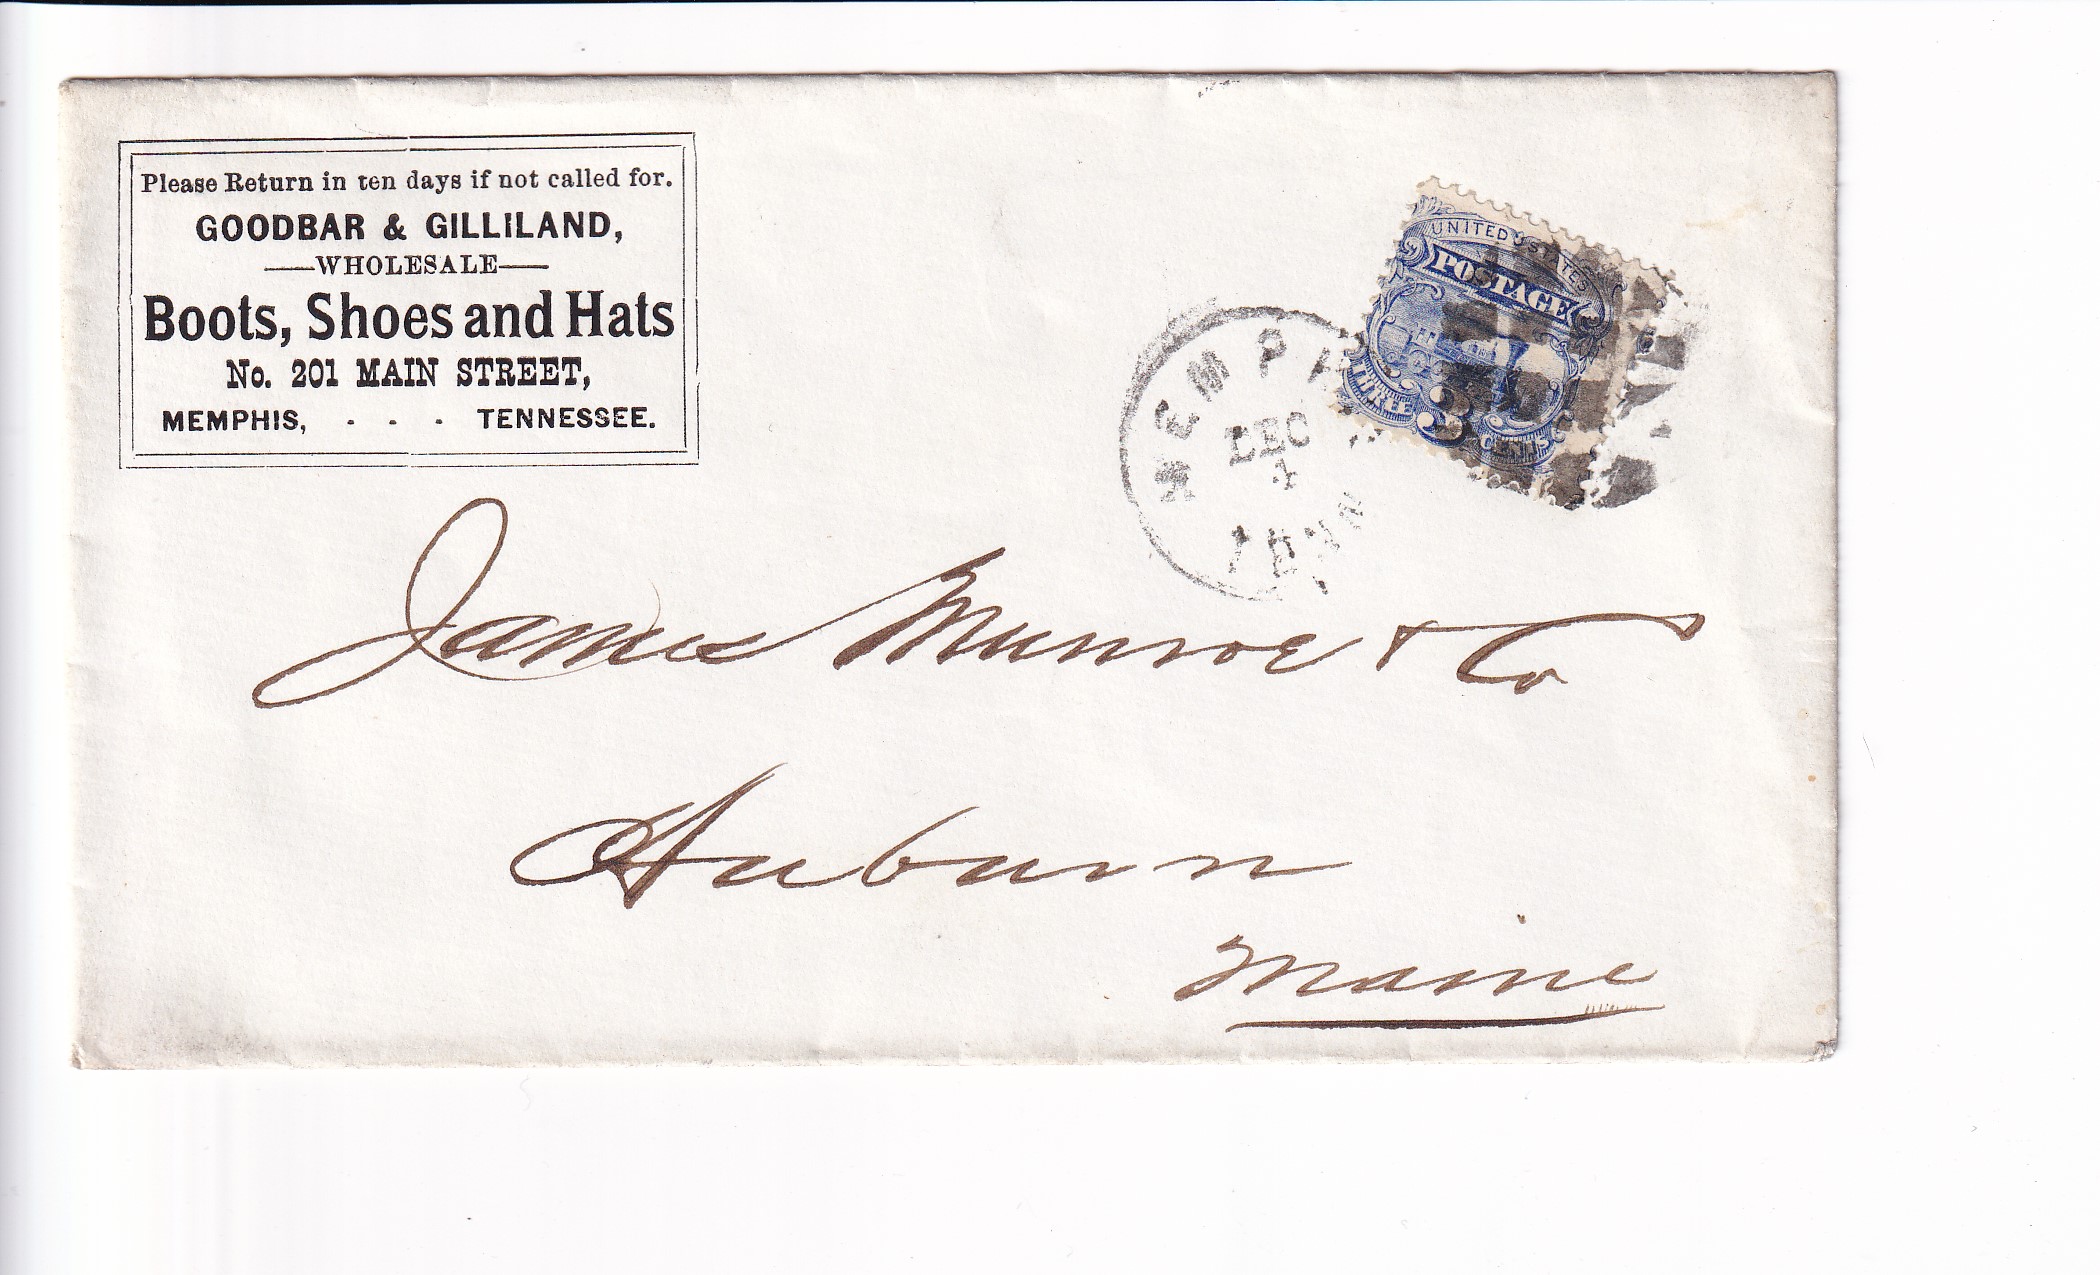 Please Return in ten days if not called for.
GOODBAR & GILLILAND,
WHOLESALE
Boots, Shoes and Hats
No. 201 MAIN STREET,
MEMPHIS, - - - TENNESSEE.
UNITED STATES
POSTAGE
THREE 3 CENTS
MEMPH
DEC
4
TENN
James Munroe & Co
Auburn
Maine